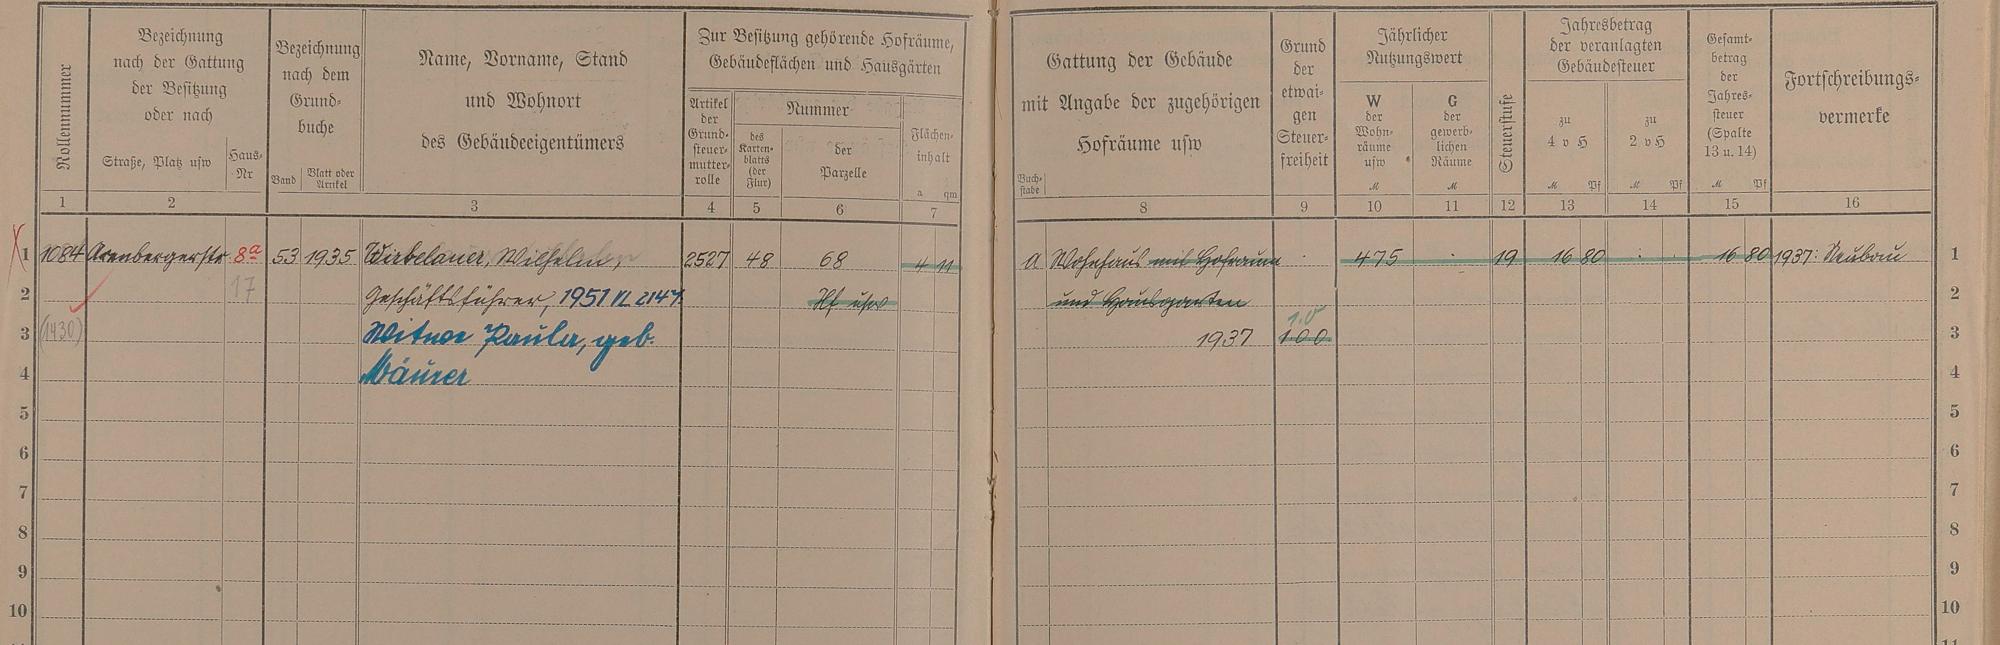 Rollennummer
Bezeichnung
nach der Gattung
der Besitzung
oder nach
Straße, Platz usw
Haus-
Nr
Bezeichnung
nach dem
Grund-
buche
Band
Blatt oder
Artikel
Name, Vorname, Stand
und Wohnort
des Gebäudeeigentümers
Zur Besitzung gehörende Hofräume,
Gebäudeflächen und Hausgärten
Artikel
der
Grund-
steuer-
mutter-
rolle
Nummer
des
Karten-
blatts
(der
Flur)
der
Parzelle
Flächen-
inhalt
a qm
1 2 3 4 5 6 7
1 1084 Arenbergerstr 8a 53 1935 Wirbelauer, Wilhelm, 2527 48 68 4 11
2 17 Geschäftsführer, 1951 VL 2147. Hf usw
3 (1430) Witwe Paula, geb.
4 Mäurer
5
6
7
8
9
10
Gattung der Gebäude
mit Angabe der zugehörigen
Hofräume usw
Buch-
stabe
Grund
der
etwai-
gen
Steuer-
freiheit
Jährlicher
Nutzungswert
W
der
Wohn-
räume
usw
M
G
der
gewerb-
lichen
Räume
M
Steuerstufe
Jahresbetrag
der veranlagten
Gebäudesteuer
zu
4 v H
M Pf
zu
2 v H
M Pf
Gesamt-
betrag
der
Jahres-
steuer
(Spalte
13 u. 14)
M Pf
Fortschreibungs-
vermerke
8 9 10 11 12 13 14 15 16
a Wohnhaus mit Hofraum . 475 . 19 16 80 . . 16 80 1937: Neubau 1
und Hausgarten 2
1937 100 3
4
5
6
7
8
9
10
11